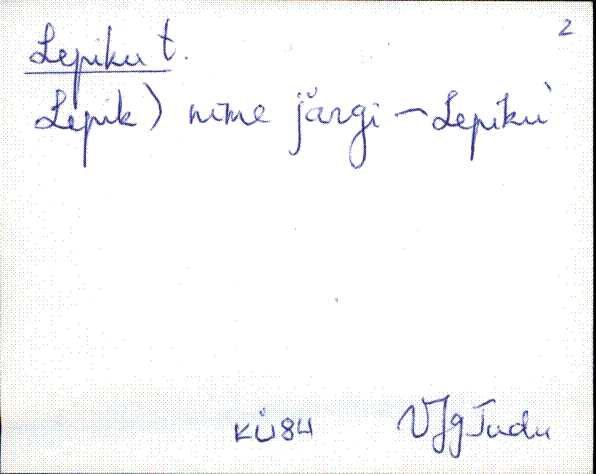 2
Lepiku t.
Lepik) nime järgi – Lepiku
KÜ84 VJg Tudu